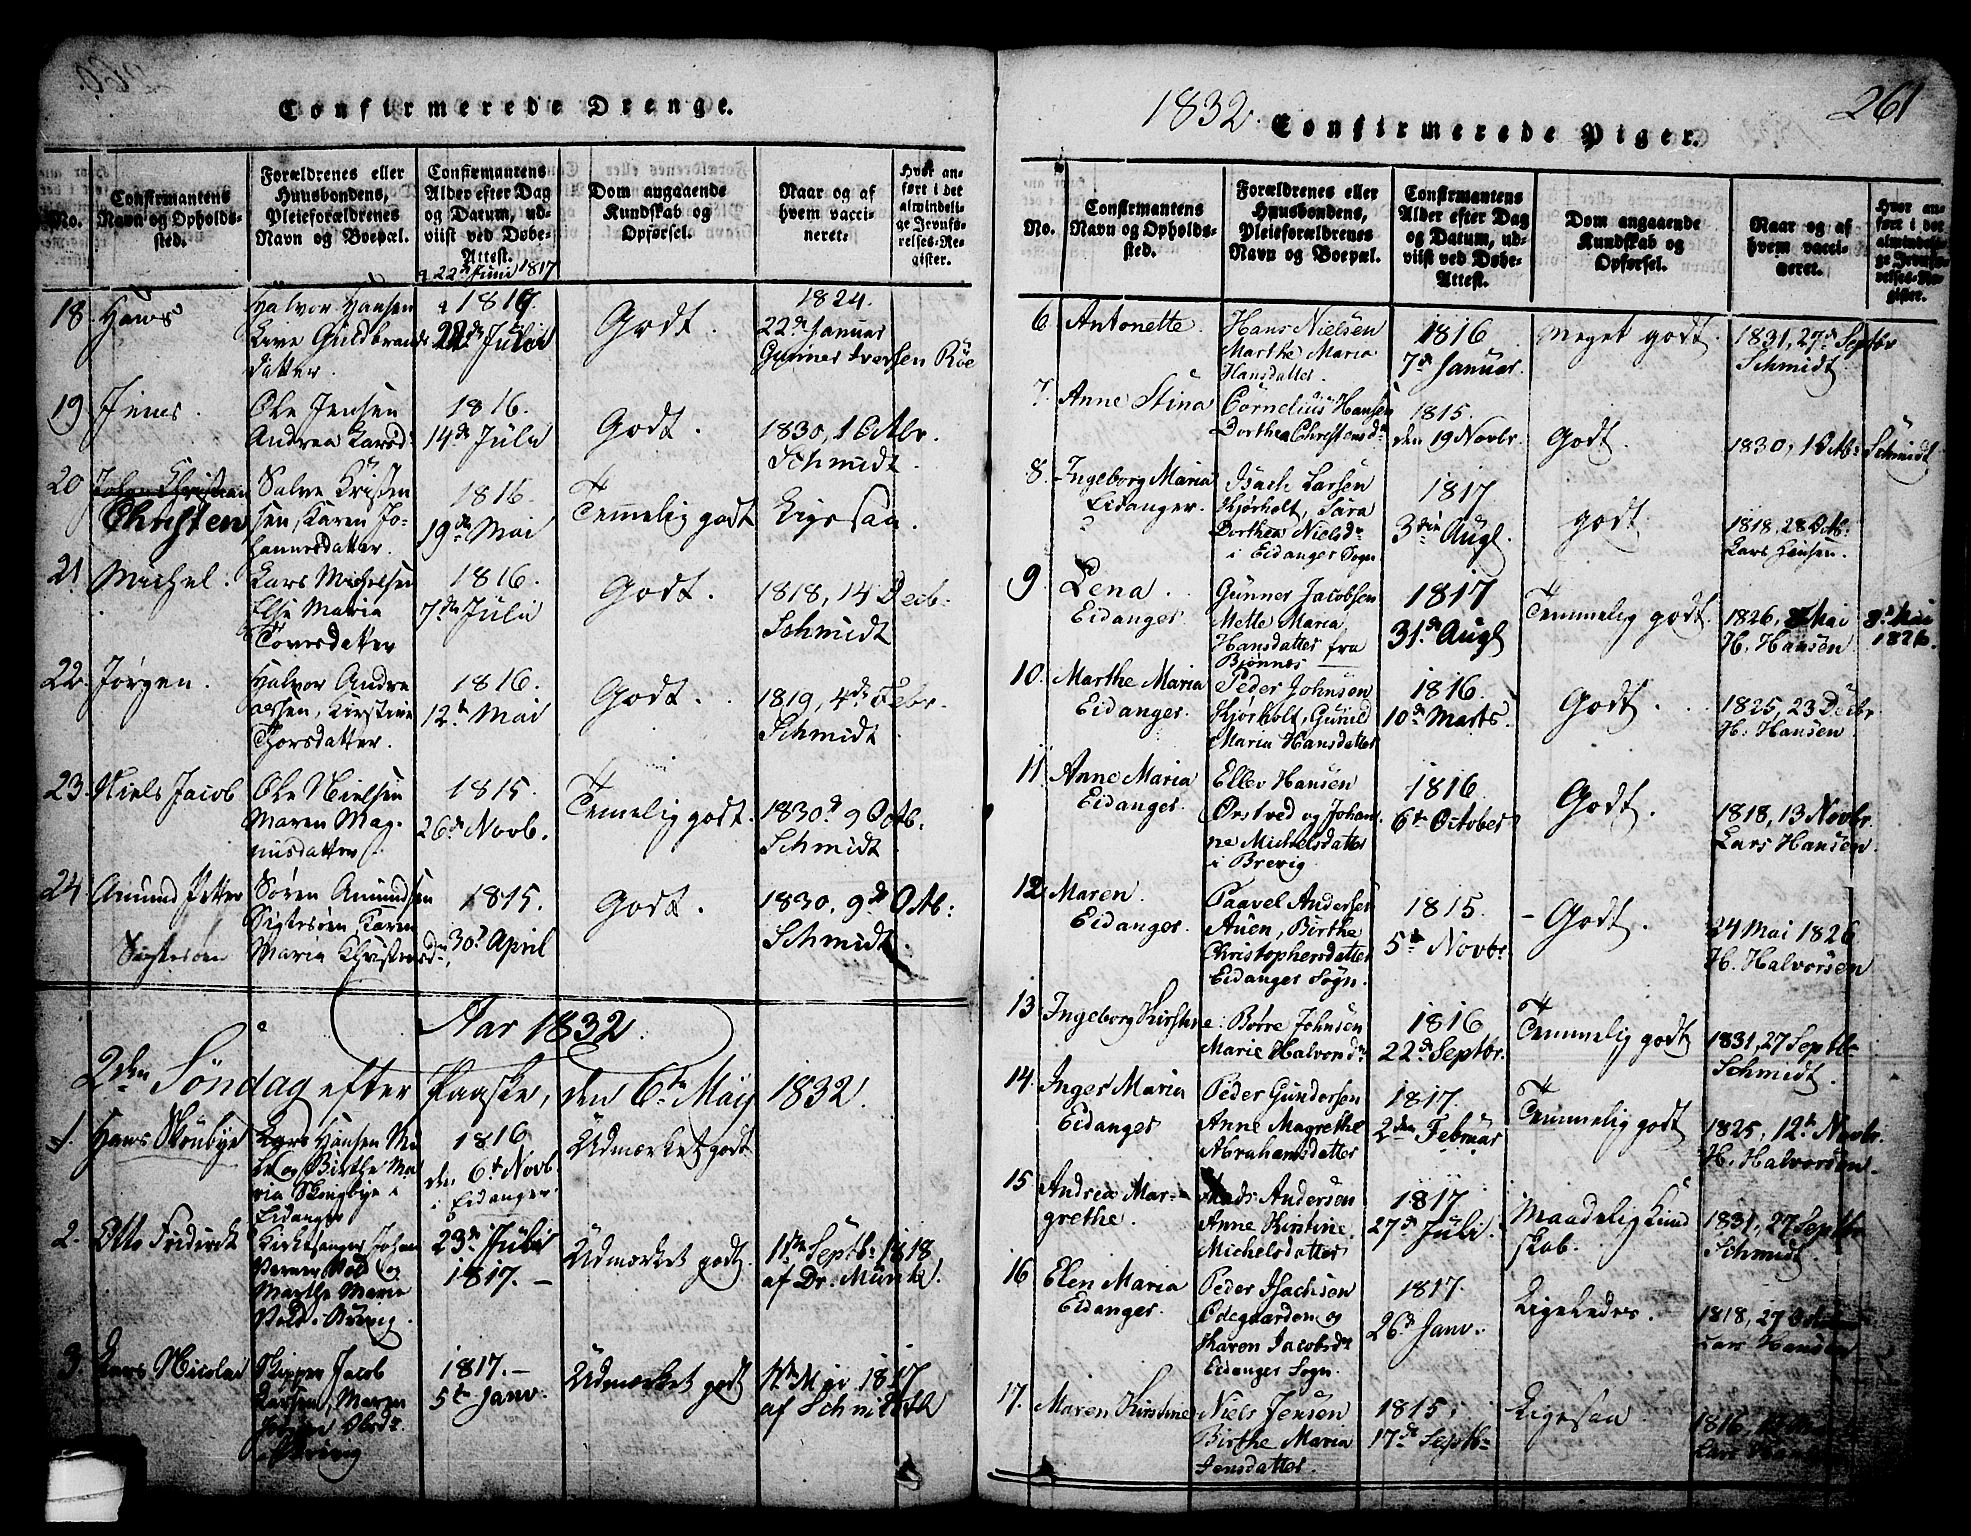 Confirmerede Drenge.
No.
Confirmantens
Navn og Opholds-
sted.
Forældrenes eller
Huusbondens,
Pleieforældrenes
Navn og Boepæl.
Confirmantens
Alder efter Dag
og Datum, ud-
viist ved Døbe-
Attest.
Dom angaaende
Kundskab og
Opførsel.
Naar og af
hvem vacci-
neret.
Hvor an-
ført i det
almindeli-
ge Jevnfø-
relses-Re-
gister.
22de Juni 1817
18. Hans
Halvor Hansen
Live Guldbrands
datter.
1816
22de Julii
Godt.
1824.
22de Januar
Gunner Iversen Röe
19. Jens.
Ole Jensen
Andrea Larsd:
1816.
14de Julii
Godt.
1830, 1 Octbr.
Schmidt.
20 Johan Christian
Christen
Salve Kristen
sen, Karen Jo-
hannesdatter.
1816.
19de Mai
Temmelig godt
Ligesaa.
21 Michel.
Lars Michelsen
Else Maria
Tovesdatter
1816.
7de Julii
Godt.
1818, 14 Decb.
Schmidt
22. Jörgen.
Halvor Andre
assen, Kirstine
Thorsdatter.
1816.
12te Mai
Godt.
1819, 4de Febr.
Schmidt
23. Niels Jacob
Ole Nielsen
Maren Mag-
nusdatter
1815.
26de Novb.
Temmelig godt.
1830 9 Octb.
Schmidt
24 Amund Petter
Sigtesøen
Sören Amundsen
Sigtesöen Karen
Maria Christensd:
1815.
30te April
Godt.
1830, 9de Octb:
Schmidt.
Aar 1832.
2den Söndag efter Paaske, den 6te Maij 1832.
1. Hans Skrubye
Lars Hansen
og Birthe Ma
ria i
Eidanger
1816
den 6te Novb
i Eidanger
Udmærket godt
2. Otto Fridrick
Kirkesanger Johan
Verner Vold og
Marthe Marie
Vold.
23de Julii
1817. –
Udmærket godt.
11te Septb: 1818.
af Dr. Munk.
3. Lars Nicolai
Skipper Jacob
Larsen, Maren
1817. –
5te Janv.
Udmærket godt
1817
af Schmidt
1832
Confirmerede Piger.
261
No.
Confirmantens
Navn og Opholds-
sted.
Forældrenes eller
Huusbondens,
Pleieforældrenes
Navn og Boepæl.
Confirmantens
Alder efter Dag
og Datum, ud-
viist ved Døbe-
Attest.
Dom angaaende
Kundskab og
Opførsel.
Naar og af
hvem vacci-
neret.
Hvor an-
ført i det
almindeli-
ge Jevnfø-
relses-Re-
gister.
6. Antonette.
Hans Nielsen
Marthe Maria
Hansdatter.
1816
7de Januar.
Meget godt.
1831, 27de Septbr
Schmidt
7. Anne Stina
Cornelius Hansen
Dorthea Christensd:
1815.
den 19 Novbr.
Godt.
1830, 1 Octb: Schmidt
8. Ingeborg Maria
Eidanger.
Isach Larsen
Kjørholt, Sara
Dorthea Nielsd:
i Eidanger Sogn
1817
3die Augl.
godt.
1818. 28 Octb:
Lars Hansen.
9. Lena.
Eidanger.
Gunner Jacobsen
Mette Maria
Hansdatter fra
Bjønnes
1817
31te Augl
Temmelig godt.
1826, 8 Mai
H. Hansen
8de Mai
1826.
10. Marthe Maria
Eidanger.
Peder Johnsen
Kjørholt, Gunild
Maria Hansdatter
1816.
10de Marts.
Godt.
1825, 23 Decbr.
H. Hansen
11 Anne Maria
Eidanger.
Ellev Hansen
Ørstved og Johan
ne Michelsdatter
i Brevig
1816
6te October
Godt.
1818, 13 Novbr.
Lars Hansen.
12. Maren
Eidanger.
Paavel Andersen
Auen, Birthe
Christophersdatter
Eidanger Sogn.
1815.
5te Novbr.
Godt.
24 Mai 1826
H. Halvorsen
13. Ingeborg Kirstine.
Börre Johnsen
Marie Halvorsd:
1816
22de Septbr.
Temmelig godt
1831, 27 Septb
Schmidt.
14. Inger Maria
Eidanger
Peder Gundersen
Anne Magrethe
Abrahamsdatter
1817.
2den Februar
Temmelig godt
1825, 12te Novbr.
H. Halvorsen.
15 Andrea Mar-
grethe.
Mads Andersen
Anne Kirstine
Michelsdatter
1817
27de Juli.
Maadelig Kund
skab.
1831, 27 Septb
Schmidt
16 Elen Maria
Eidanger.
Peder Isachsen
Ødegaarden og
Karen Jacobsd:
Eidanger Sogn.
1817.
26de Janv.
Ligeledes.
1818, 27 Octb
Lars Hansen
17. Maren Kirstine
Niels Jensen
Birthe Maria
Jensdatter.
1815,
17de Septb
Ligesaa.
1816,
Lars Hansen